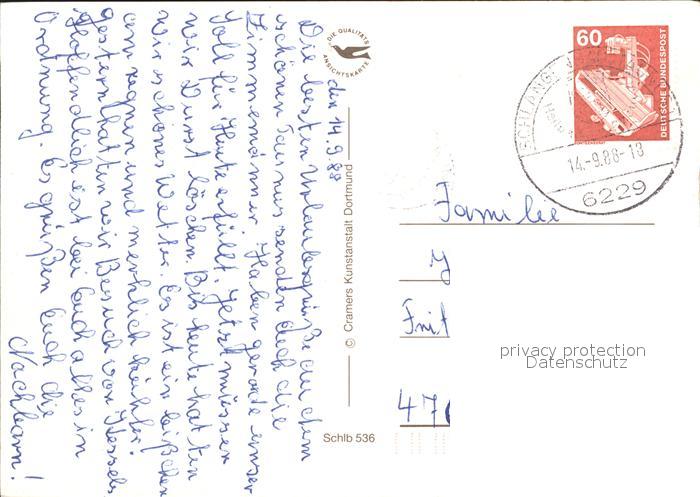 den 14.9.88
Die besten Urlaubsgrüße aus dem
schönen Taunus senden Euch die
Zimmermänner. Haben gerade unser
Soll für Heute erfüllt. Jetzt müssen
wir Durst löschen. Bis heute hatten
wir schönes Wetter. Es ist ein bißchen
am regnen und merklich kühler.
gestern hatten wir Besuch von Kessels
Hoffendlich ist bei Euch alles in
Ordnung. Es grüßen Euch die
Nachbarn!
DIE QUALITÄTS
ANSICHTSKARTE
© Cramers Kunstanstalt Dortmund
Schlb 536
60
DEUTSCHE BUNDESPOST
SCHLANG
14.-9.88-13
6229
Familie
Frit
47
privacy protection
Datenschutz